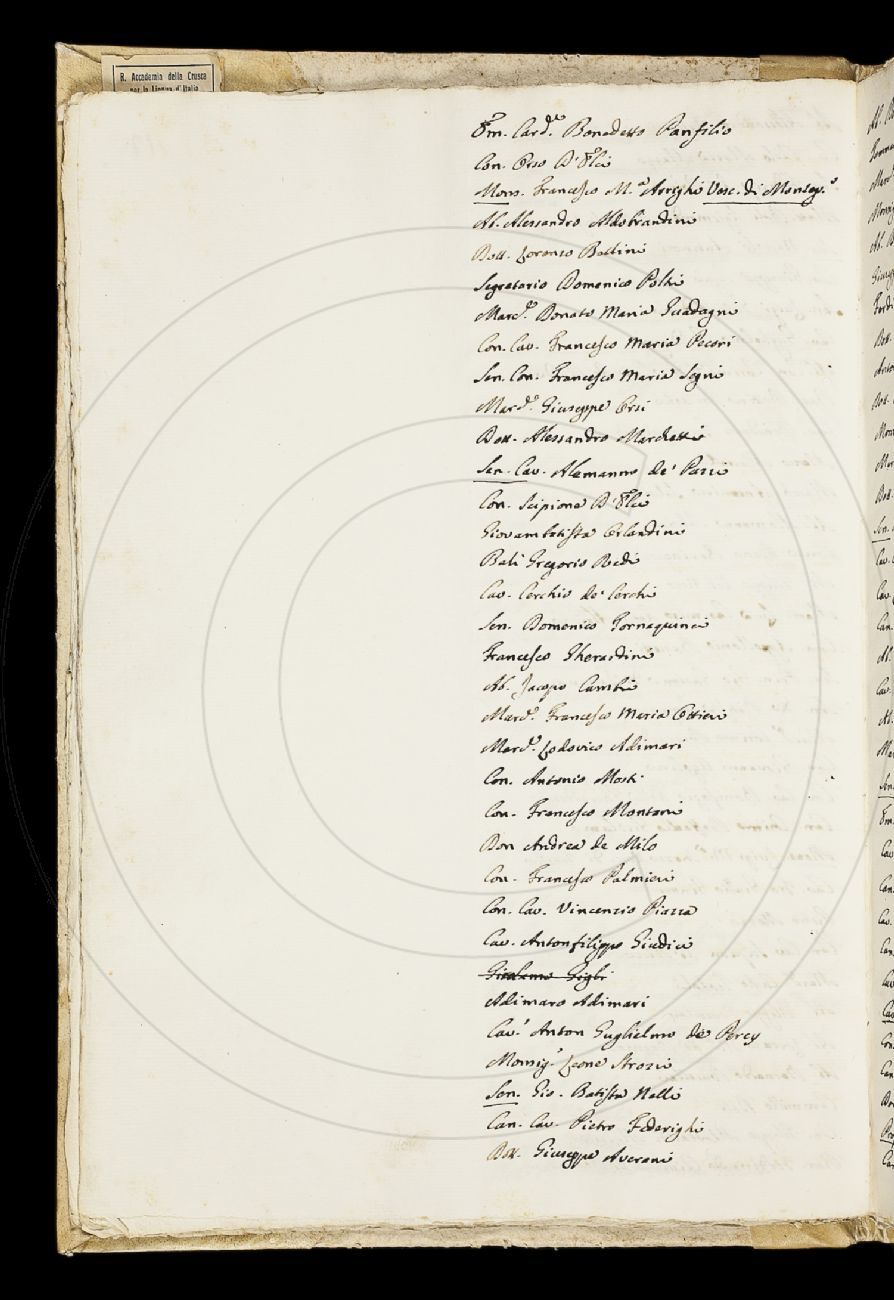 R. Accademia della Crusca
per la Lingua d'Italia
Em. Card.le Benedetto Panfilio
Con. Orso D'Elci
Mons. Francesco M.a Arrighi Vesc. di Montep.o
Ab. Alessandro Aldobrandini
Dott. Lorenzo Bellini
Segretario Domenico Poltri
March.e Donato Maria Guadagni
Con. Cav. Francesco Maria Pecori
Sen. Con. Francesco Maria Segni
March.e Giuseppe Orsi
Dott. Alessandro Marchetti
Sen. Cav. Alemanno de' Pazzi
Con. Scipione D'Elci
Giovambatista Orlandini
Balì Gregorio Redi
Cav. Cerchio de' Cerchi
Sen. Domenico Tornaquinci
Francesco Gherardini
Ab. Jacopo Cambi
March.e Francesco Maria Ottieri
March.e Lodovico Adimari
Con. Antonio Mosti
Con. Francesco Montani
Don Andrea de Milo
Con. Francesco Palmieri
Con. Cav. Vincenzio Piazza
Cav. Antonfilippo Giudici
Girolamo Gigli
Adimaro Adimari
Cav.r Anton Guglielmo de Percy
Monsig.r Leone Strozzi
Sen. Gio. Batista Nelli
Can. Cav. Pietro Federighi
Dott. Giuseppe Averani